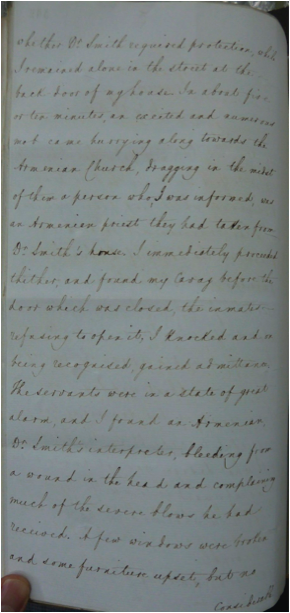 whether Dr. Smith required protection, while
I remained alone in the street at the
back door of my house. In about five
or ten minutes, an excited and numerous
mob came hurrying along towards the
Armenian Church, dragging in the midst
of them a person who, I was informed, was
an Armenian priest they had taken from
Dr. Smith's house. I immediately proceeded
thither, and found my Cavaz before the
door which was closed, the inmates
refusing to open it, I knocked and on
being recognised, gained admittance.
The servants were in a state of great
alarm, and I found an Armenian
Dr. Smith's interpreter, bleeding from
a wound in the head and complaining
much of the severe blows he had
received. A few windows were broken
and some furniture upset, but no